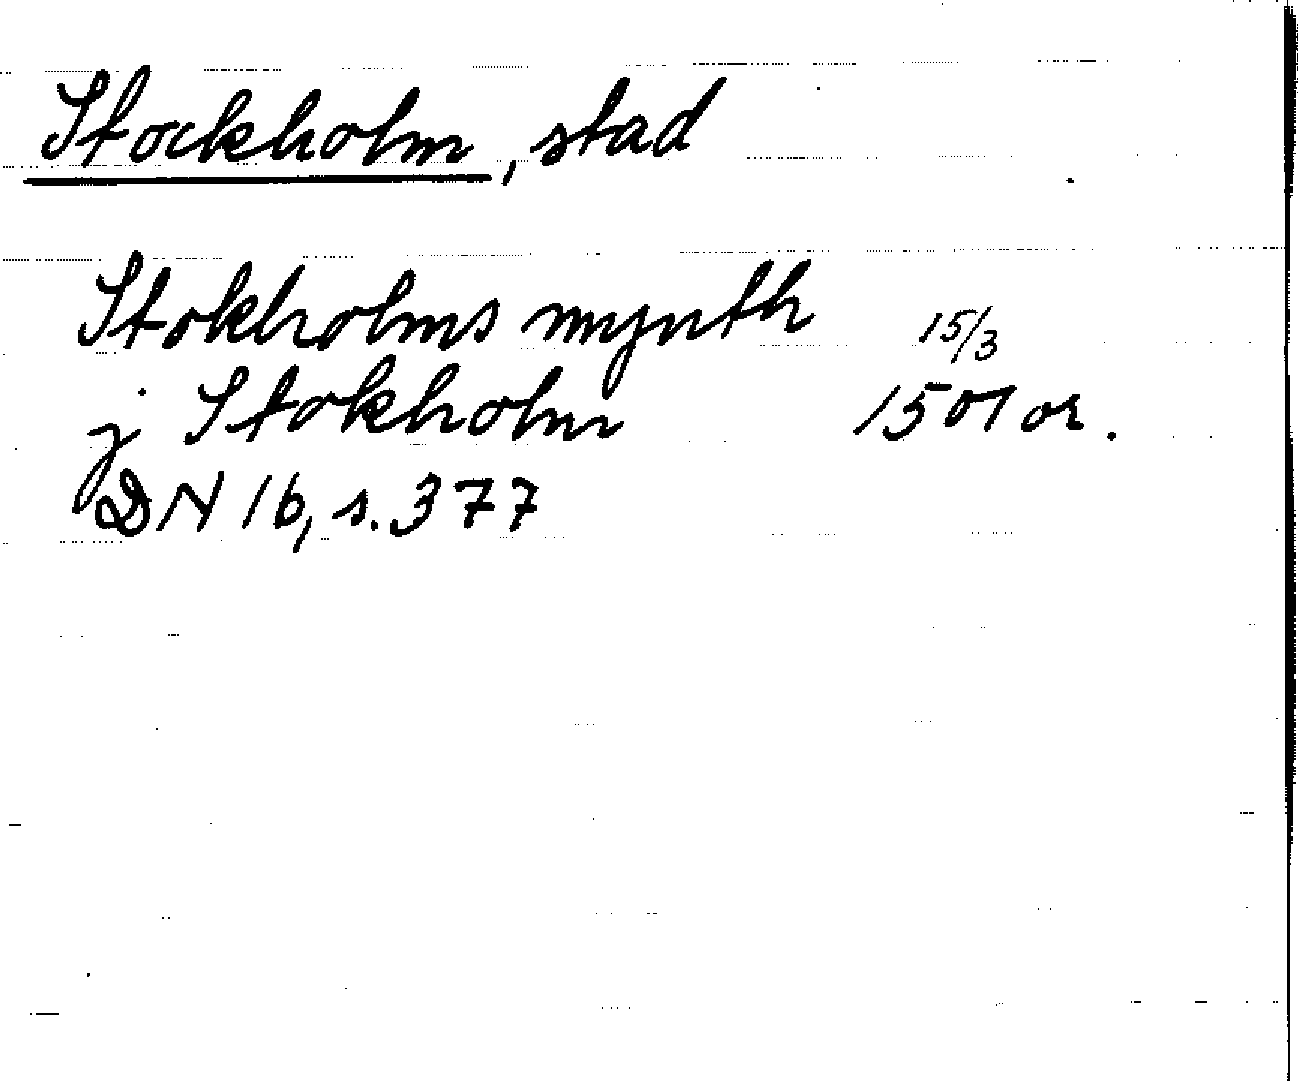 Stockholm, stad
Stokholms mynth 15/3
j Stokholm 1501 or.
DN 16, s. 377